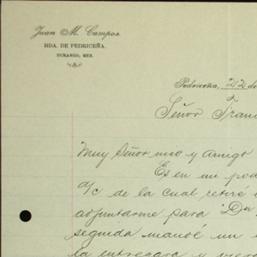 Juan M. Campos
HDA. DE PEDRICEÑA,
DURANGO, MEX.
Pedriceña, 22 de
Señor Fran
Muy Señor mio y Amigo
Es en mi pod
a/c de la cual retiré
adjuntarme para "Dn
segunda mandé un
la entregara y